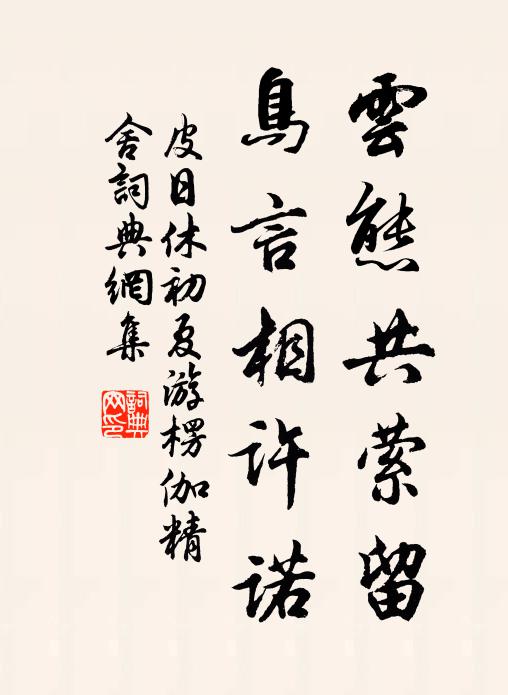 雲態共萦留
鳥言相許諾
皮日休初夏游楞伽精
舍詞典網集
詞典
网印